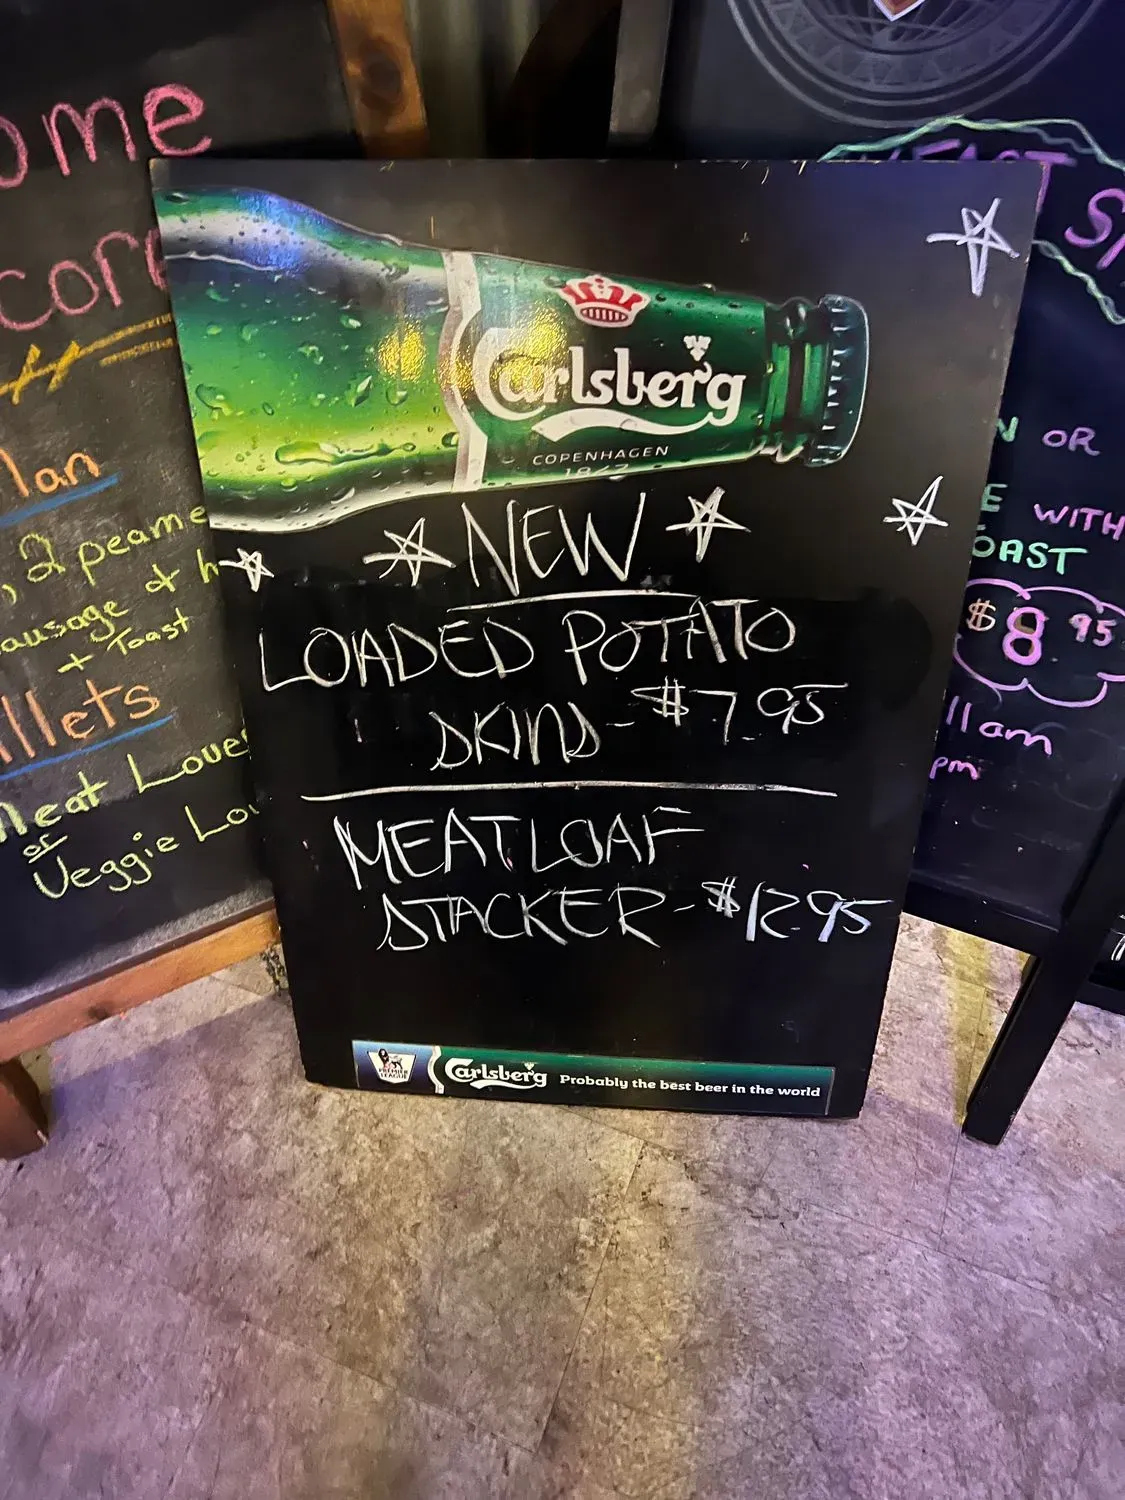 ome
core
lan
, 2 peame
ausage & h
+ Toast
illets
Meat Lover
or
Veggie Lov
Carlsberg
COPENHAGEN
1847
NEW
LOADED POTATO
SKINS - $7.95
MEATLOAF
STACKER - $12.95
PREMIER
LEAGUE
Carlsberg Probably the best beer in the world
N OR
E WITH
OAST
$8 95
11am
pm